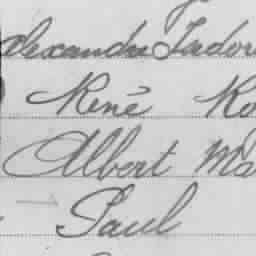 Alexandre Isidor
René Ro
Albert Ma
Paul